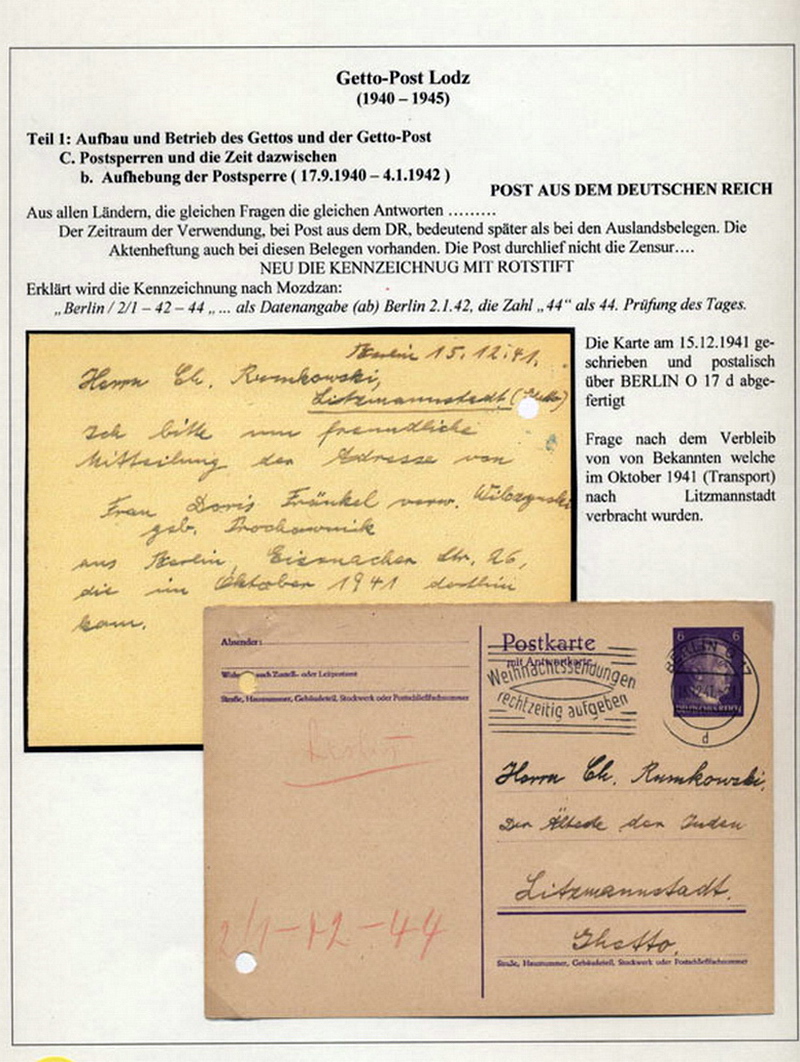 Getto-Post Lodz
(1940 – 1945)
Teil 1: Aufbau und Betrieb des Gettos und der Getto-Post
C. Postsperren und die Zeit dazwischen
b. Aufhebung der Postsperre ( 17.9.1940 – 4.1.1942 )
POST AUS DEM DEUTSCHEN REICH
Aus allen Ländern, die gleichen Fragen die gleichen Antworten .........
Der Zeitraum der Verwendung, bei Post aus dem DR, bedeutend später als bei den Auslandsbelegen. Die
Aktenheftung auch bei diesen Belegen vorhanden. Die Post durchlief nicht die Zensur....
NEU DIE KENNZEICHNUG MIT ROTSTIFT
Erklärt wird die Kennzeichnung nach Mozdzan:
„Berlin / 2/1 – 42 – 44 „... als Datenangabe (ab) Berlin 2.1.42, die Zahl „44“ als 44. Prüfung des Tages.
Die Karte am 15.12.1941 ge-
schrieben und postalisch
über BERLIN O 17 d abge-
fertigt
Frage nach dem Verbleib
von von Bekannten welche
im Oktober 1941 (Transport)
nach Litzmannstadt
verbracht wurden.
Berlin 15.12.41.
Herrn Ch. Rumkowski,
Litzmannstadt (Ghetto)
Ich bitte um freundliche
Mitteilung der Adresse von
Frau Doris Fränkel verw. Wilczynski
geb. Prochownik
aus Berlin, Eisenacher Str. 26,
die im Oktober 1941 dorthin
kam.
Absender:
Wohnort, auch Zustell- oder Leitpostamt
Straße, Hausnummer, Gebäudeteil, Stockwerk oder Postschließfachnummer
Berlin
2/1-42-44
Postkarte
mit Antwortkarte
Weihnachtssendungen
rechtzeitig aufgeben
6 6
BERLIN O 17
d
Herrn Ch. Rumkowski,
Der Älteste der Juden
Litzmannstadt.
Ghetto,
Straße, Hausnummer, Gebäudeteil, Stockwerk oder Postschließfachnummer